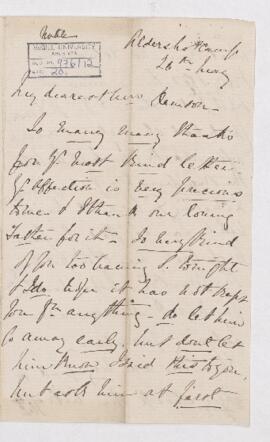 Noble
McGILL UNIVERSITY
ARCHIVES
ACC. NO. 976/12
REF. 20.
Aldershot Camp
26th
My dearest Mrs Dawson -
So many many thanks
for yr most kind letter
Yr affection is very precious
to me & I thank our loving
Father for it - So very kind
of you too having S. tonight
I do hope it has not kept
you fm anything - do let him
go away early. but don't let
him know I said this to you,
but ask him at first